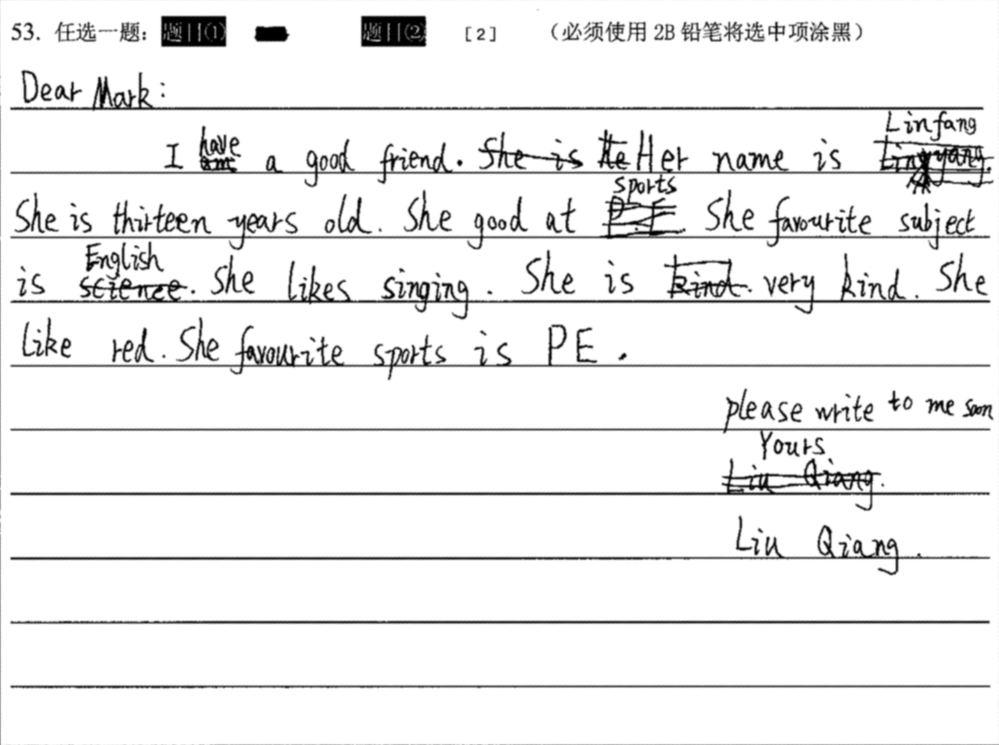 53. 任选一题： 题目(1) 题目(2) [2] （必须使用 2B 铅笔将选中项涂黑）
Dear Mark:
I have a good friend. She is He Her name is Linfang
She is thirteen years old. She good at sports She favourite subject
is English science. She likes singing. She is kind. very kind. She
like red. She favourite sports is PE.
please write to me soon
Yours
Liu Qiang.
Liu Qiang.